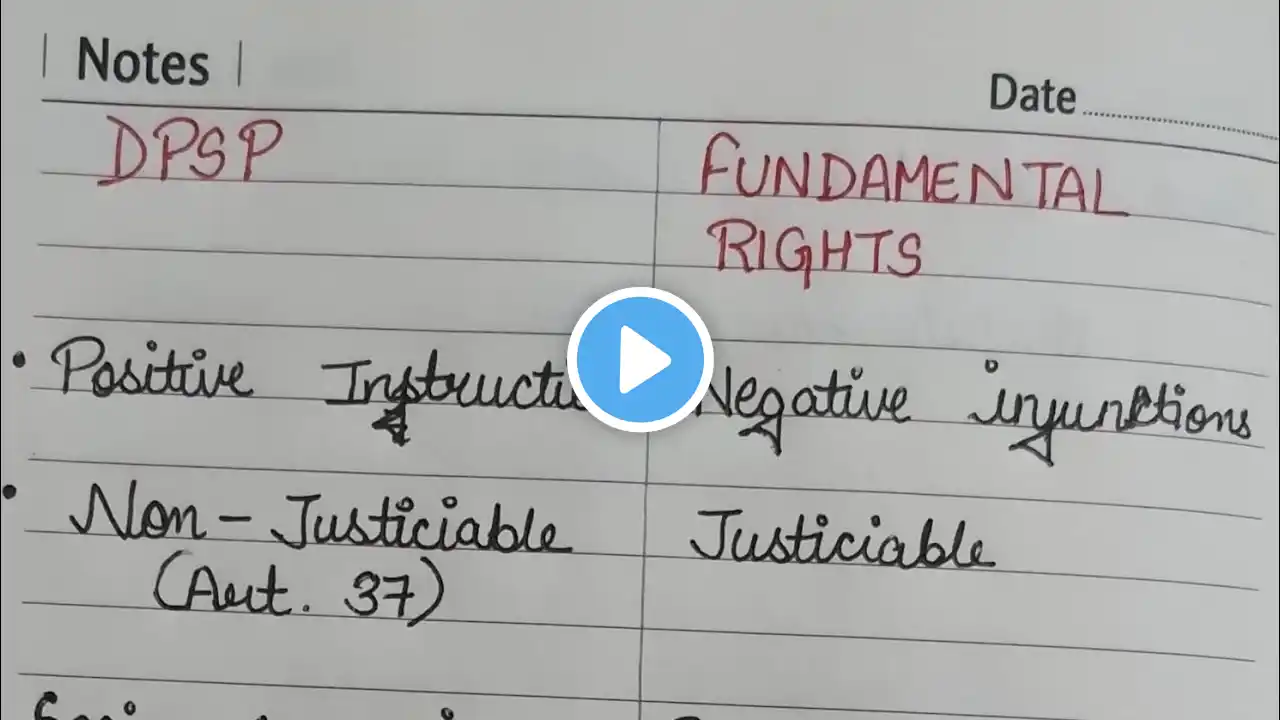 | Notes |
Date
DPSP
FUNDAMENTAL
RIGHTS
• Positive
Negative injunctions
• Non-Justiciable
Justiciable
(Art. 37)